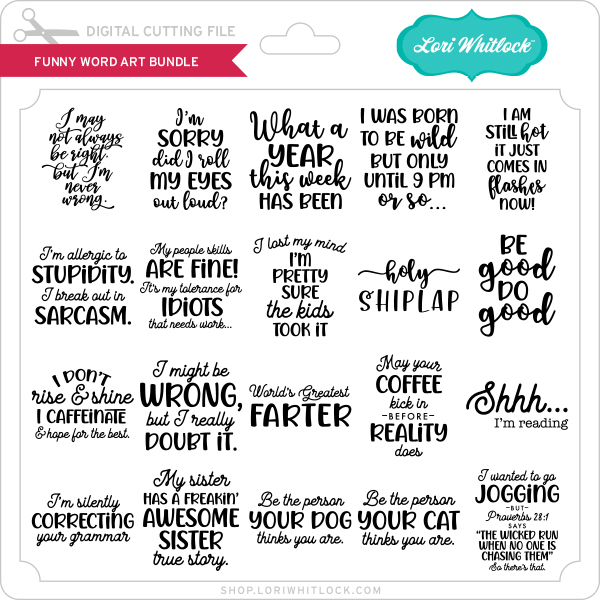 DIGITAL CUTTING FILE
FUNNY WORD ART BUNDLE
Lori Whitlock
I may
not always
be right.
but I'm
never
wrong.
I'm
SORRY
did I roll
MY EYES
out loud?
What a
YEAR
this week
HAS BEEN
I WAS BORN
TO BE wild
BUT ONLY
UNTIL 9 PM
or so...
I AM
STILL hot
IT JUST
COMES IN
flashes
NOW!
I'm allergic to
STUPIDITY.
I break out in
SARCASM.
My people skills
ARE FINE!
It's my tolerance for
IDIOTS
that needs work...
I lost my mind
I'M
PRETTY
SURE
the kids
TOOK IT
holy
SHIPLAP
BE
good
DO
good
I DON'T
rise & shine
I CAFFEINATE
& hope for the best.
I might be
WRONG,
but I really
DOUBT IT.
World's Greatest
FARTER
May your
COFFEE
kick in
-BEFORE-
REALITY
does
Shhh...
I'm reading
I'm silently
CORRECTING
your grammar
My sister
HAS A FREAKIN'
AWESOME
SISTER
true story.
Be the person
YOUR DOG
thinks you are.
Be the person
YOUR CAT
thinks you are.
I wanted to go
JOGGING
-BUT-
Proverbs 28:1
SAYS
"THE WICKED RUN
WHEN NO ONE IS
CHASING THEM"
So there's that.
SHOP.LORIWHITLOCK.COM